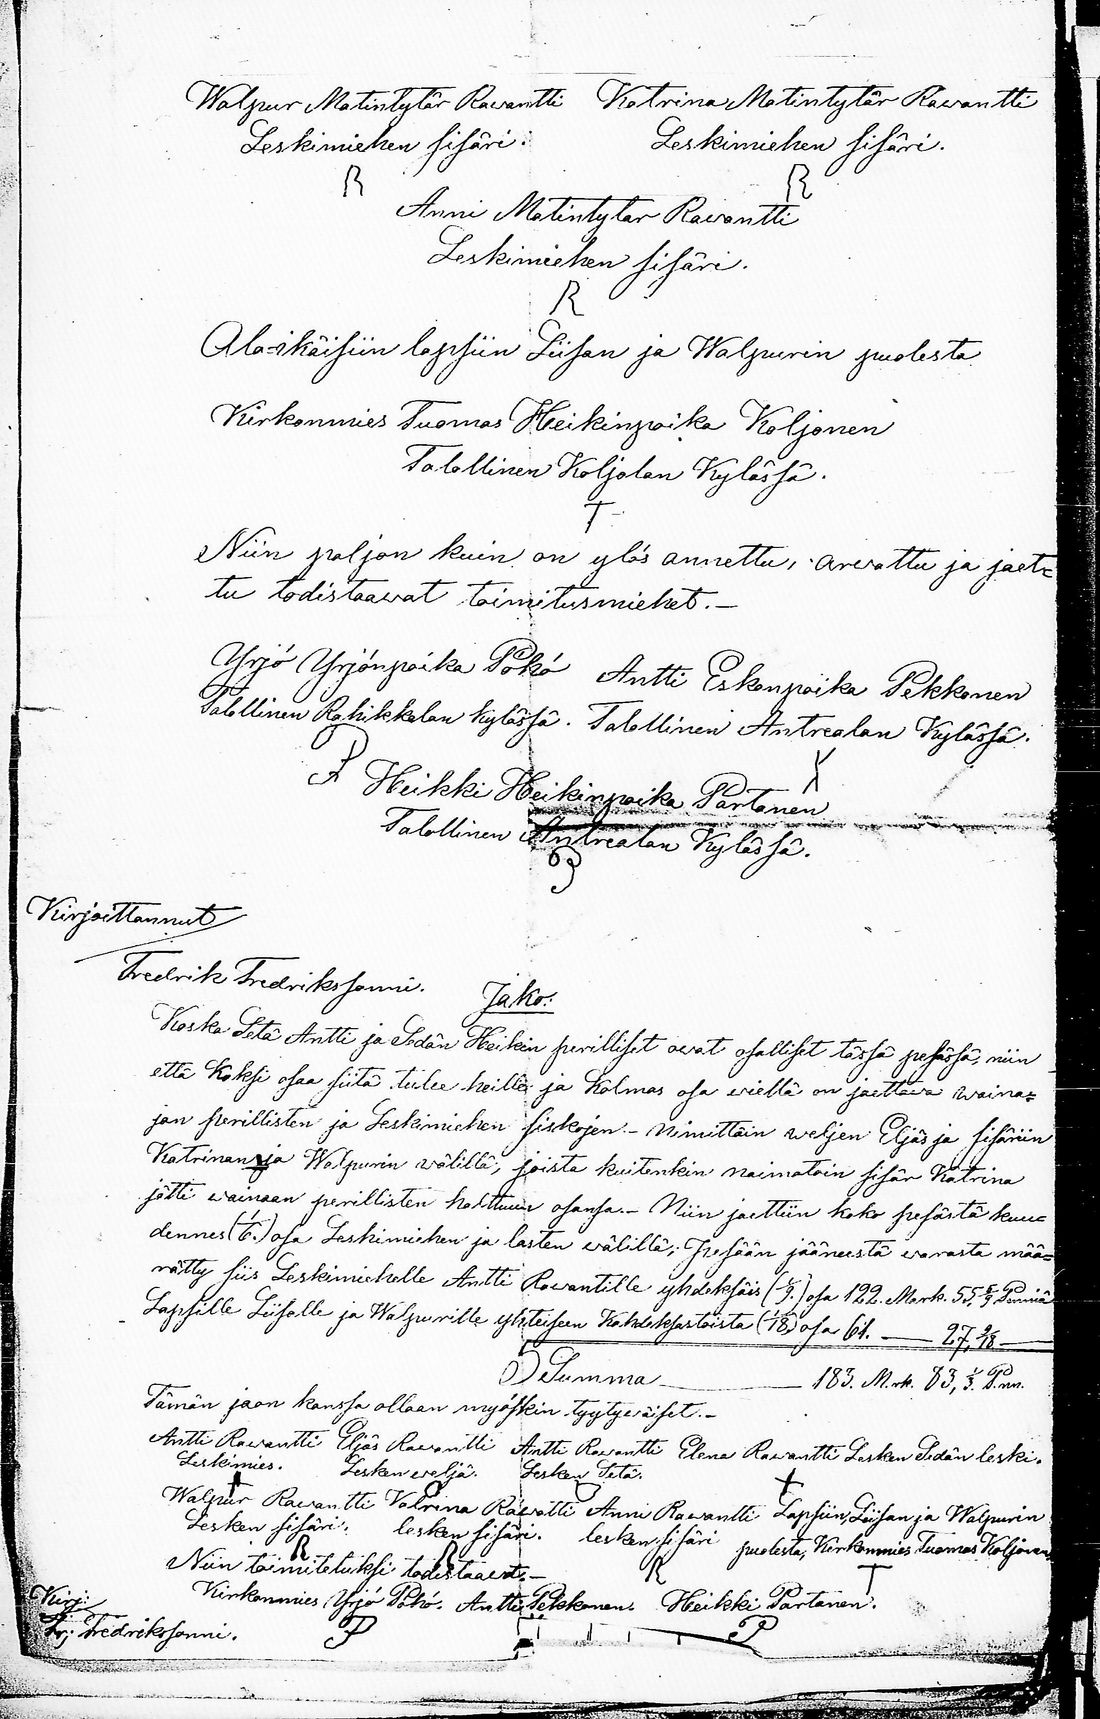 Walpur Matintytär Rawantti Katrina Matintytär Rawantti
Leskimiehen sisäri. Leskimiehen sisäri.
R R
Anni Matintytär Rawantti
Leskimiehen sisäri.
R
Ala-ikäisiin lapsiin Liisan ja Walpurin puolesta
Kirkonmies Tuomas Heikinpoika Koljonen
Talollinen Koljolan Kylässä.
T
Niin paljon kuin on ylös annettu, arwattu ja jaet=
tu todistaawat toimitusmiehet.—
Yrjö Yrjönpoika Pökö Antti Eskonpoika Pekkonen
Talollinen Rahikkalan kylässä. Talollinen Antrealan Kylässä.
Heikki Heikinpoika Partanen
Talollinen Antrealan Kylässä.
Kirjoittannut
Fredrik Fredrikssonni.
Jako:
Koska Setä Antti ja Sedän Heikin perilliset owat osalliset tässä pesässä, niin
että Koksi osaa siitä tulee heille ja Kolmas osa wiellä on jaettawa waina=
jan perillisten ja Leskimiehen siskojen.— Nimittäin weljen Eljäs ja sisäriin
Katrinan ja Walpurin wälillä, joista kuitenkin naimatoin sisär Katrina
jätti wainaan perillisten haltuun osansa.— Niin jaettiin koko pesästä kuu=
dennes (1/6.) osa Leskimiehen ja lasten wälillä; Pesään jääneestä warasta mää=
rätty siis Leskimiehelle Antti Rawantille yhdeksäis (1/9.) osa 122. Mark. 55,5/9 Penniä
Lapsille Liisalle ja Walpurille yhteiseen Kahdeksastoista (1/18) osa 61. — 27,9/18 —
Summa — 183. Mrk. 83,1/3. Pnn.
Tämän jaon kanssa ollaan myöskin tyytywäiset.—
Antti Rawantti Eljäs Rawantti Antti Rawantti Elena Rawantti Lesken Sedän leski.
Leskimies. Lesken weljä. Lesken Setä.
Walpur Rawantti Katrina Rawatti Anni Rawantti Lapsiin Liisan ja Walpurin
Lesken sisäri. lesken sisäri. lesken sisäri puolesta, Kirkonmies Tuomas Koljonen
R R R T
Niin toimitetuksi todistaawt.—
Kirkonmies Yrjö Pökö. Antti Pekkonen. Heikki Partanen.
Kirj:
Fr: Fredrikssonni.